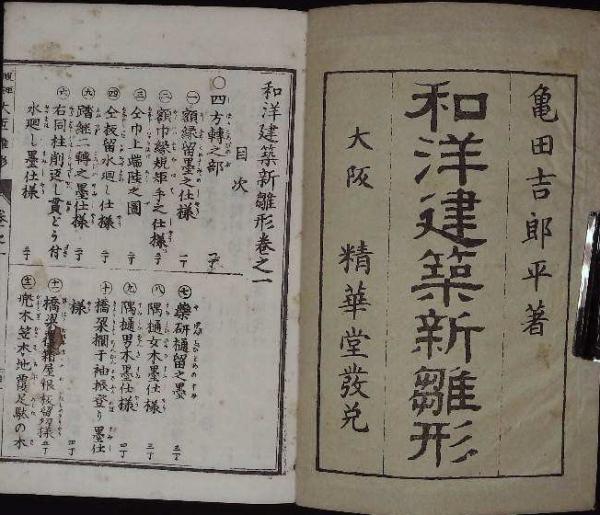 亀田吉郎平著
和洋建築新雛形
大阪 精華堂發兌
和洋建築新雛形巻之一
目次
○四方轉之部
一 額縁留墨之仕様 一丁
二 額巾縁規矩手之仕様 二丁
三 仝巾上端陸之圖 二丁
四 仝板留水廻し仕様 二丁
五 踏継二轉之墨仕様 二丁
六 右同柱削返し貫どう付
水廻し墨仕様 二丁
七 薬研樋留之墨 三丁
八 隅樋女木墨仕様 三丁
九 隅樋男木墨仕様 四丁
十 橋梁欄干袖振登り墨仕
様 四丁
橋梁
屋根板留
兜木笠木地覆足駄の木